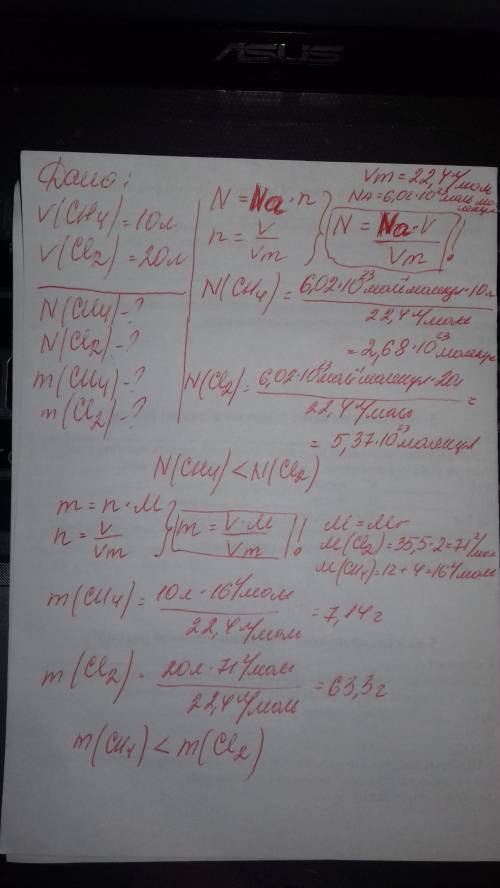 ASUS
Дано:
V(CH4)=10л
V(Cl2)=20л
N(CH4)-?
N(Cl2)-?
m(CH4)-?
m(Cl2)-?
Vm=22,4 л/моль
N=Na·n
n=V/Vm
N=Na·V/Vm!
N(CH4)=6,02·10²³моль⁻¹молекул·10л/22,4 л/моль
=2,68·10²³молекул
N(Cl2)=6,02·10²³моль⁻¹молекул·20л/22,4 л/моль=
=5,37·10²³молекул
N(CH4)<N(Cl2)
m=n·M
n=V/Vm
m=V·M/Vm!
M=Mr
M(Cl2)=35,5·2=71г/моль
M(CH4)=12+4=16г/моль
m(CH4)=10л·16г/моль/22,4 л/моль=7,14г
m(Cl2)=20л·71г/моль/22,4 л/моль=63,3г
m(CH4)<m(Cl2)